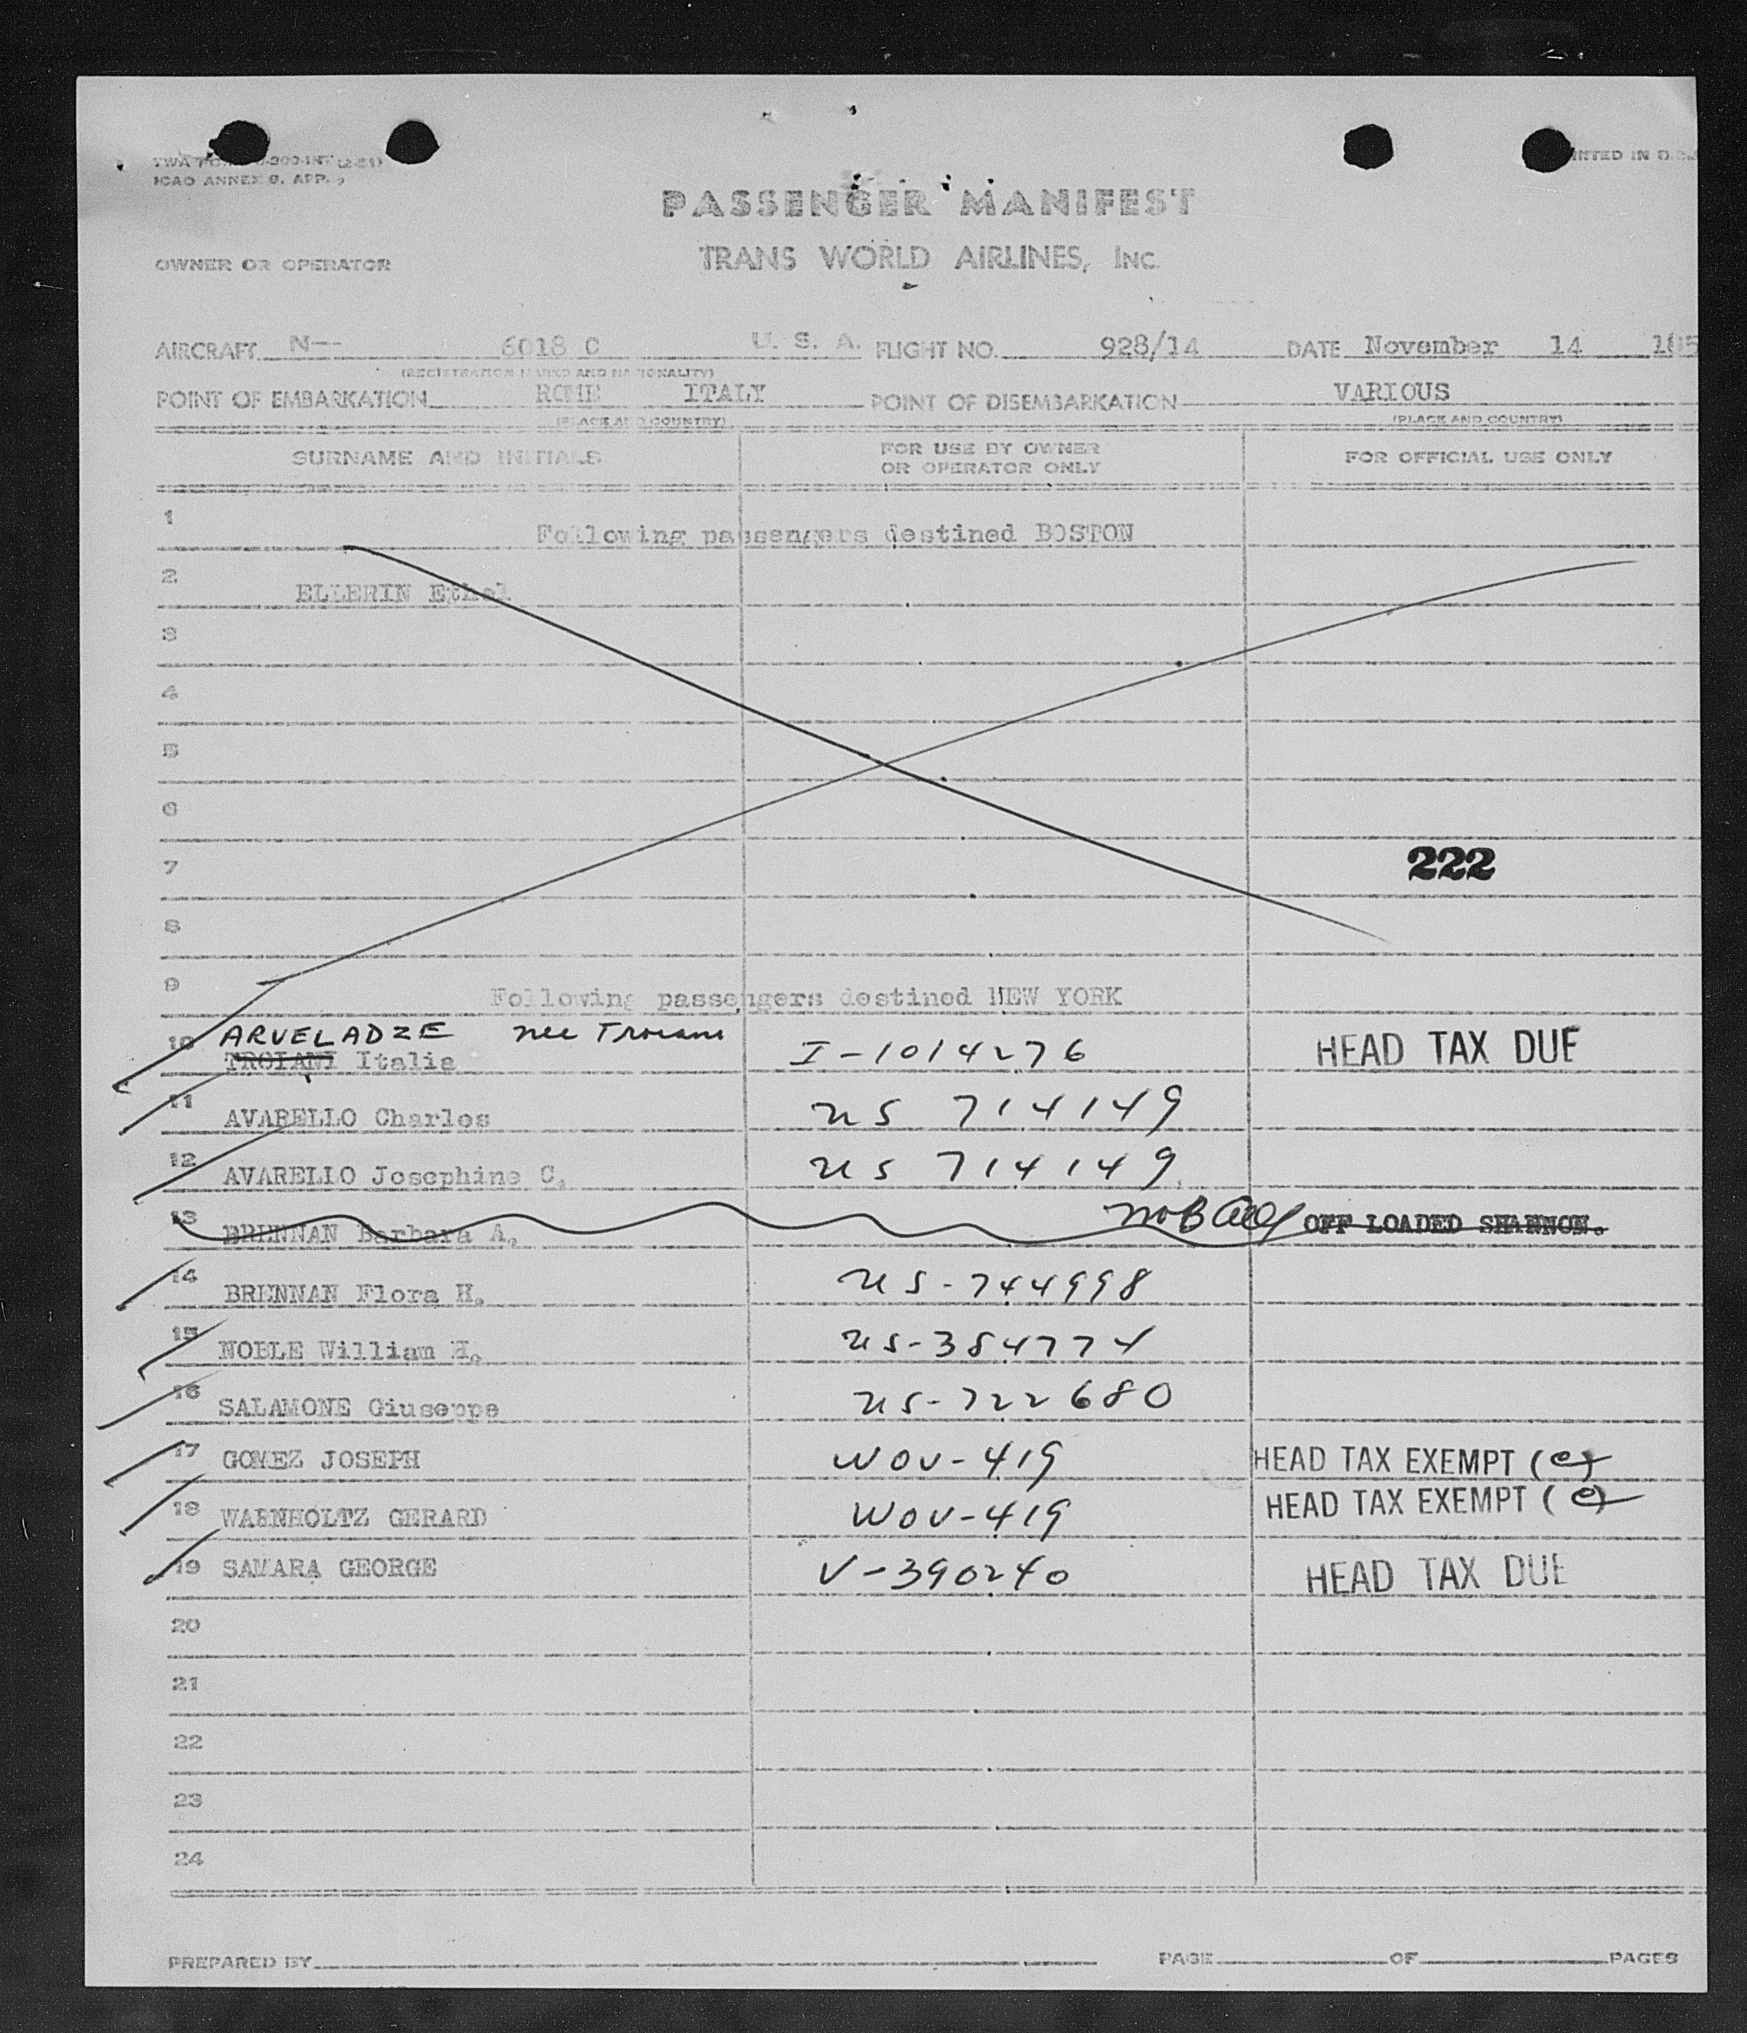 ICAO ANNEX 9, APP.
PASSENGER MANIFEST
OWNER OR OPERATOR
TRANS WORLD AIRLINES, INC.
AIRCRAFT N-- 6018 C U. S. A. FLIGHT NO. 928/14 DATE November 14 195
(REGISTRATION MARKS AND NATIONALITY)
POINT OF EMBARKATION ROME ITALY POINT OF DISEMBARKATION VARIOUS
(PLACE AND COUNTRY) (PLACE AND COUNTRY)
SURNAME AND INITIALS FOR USE BY OWNER OR OPERATOR ONLY FOR OFFICIAL USE ONLY
1 Following passengers destined BOSTON
2 ELLERIN Ethel
3
4
5
6
7 222
8
9 Following passengers destined NEW YORK
ARVELADZE nee Troiani
10 TROIANI Italia I-1014276 HEAD TAX DUE
11 AVARELLO Charles US 714149
12 AVARELLO Josephine C. US 714149
13 BRENNAN Barbara A. OFF LOADED SHANNON.
14 BRENNAN Flora H. US-744998
15 NOBLE William H. US-384774
16 SALAMONE Giuseppe US-722680
17 GOMEZ JOSEPH WOV-419 HEAD TAX EXEMPT (e)
18 WARNHOLTZ GERARD WOV-419 HEAD TAX EXEMPT (e)
19 SAMARA GEORGE V-390240 HEAD TAX DUE
20
21
22
23
24
PREPARED BY PAGE OF PAGES